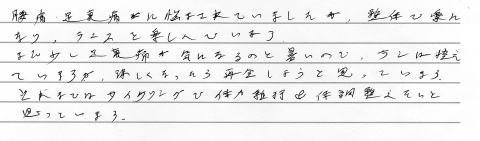 腰痛、足裏痛などに悩まされていましたが、整体で楽になり、テニスを楽しんでいます。
まだ少し足裏痛が気になるのと暑いので、ランは控えていますが、涼しくなったら再会しようと思っています。
それまではサイクリングで体力維持と体調整えたいと
思っています。